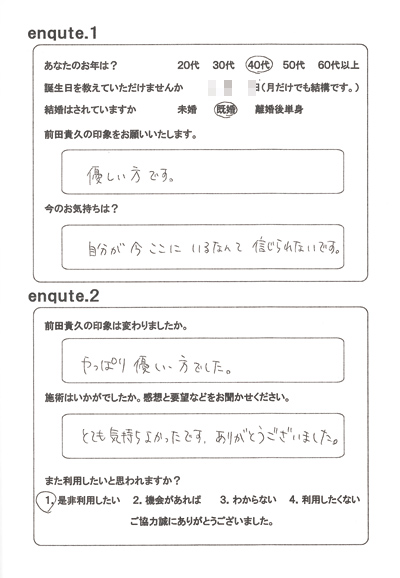 enqute.1
あなたのお年は? 20代 30代 40代 50代 60代以上
誕生日を教えていただけませんか 日(月だけでも結構です。)
結婚はされていますか 未婚 既婚 離婚後単身
前田貴久の印象をお願いいたします。
優しい方です。
今のお気持ちは?
自分が今ここにいるなんて信じられないです。
enqute.2
前田貴久の印象は変わりましたか。
やっぱり優しい方でした。
施術はいかがでしたか。感想と要望などをお聞かせください。
とても気持ちよかったです。ありがとうございました。
また利用したいと思われますか?
1. 是非利用したい 2. 機会があれば 3. わからない 4. 利用したくない
ご協力誠にありがとうございました。